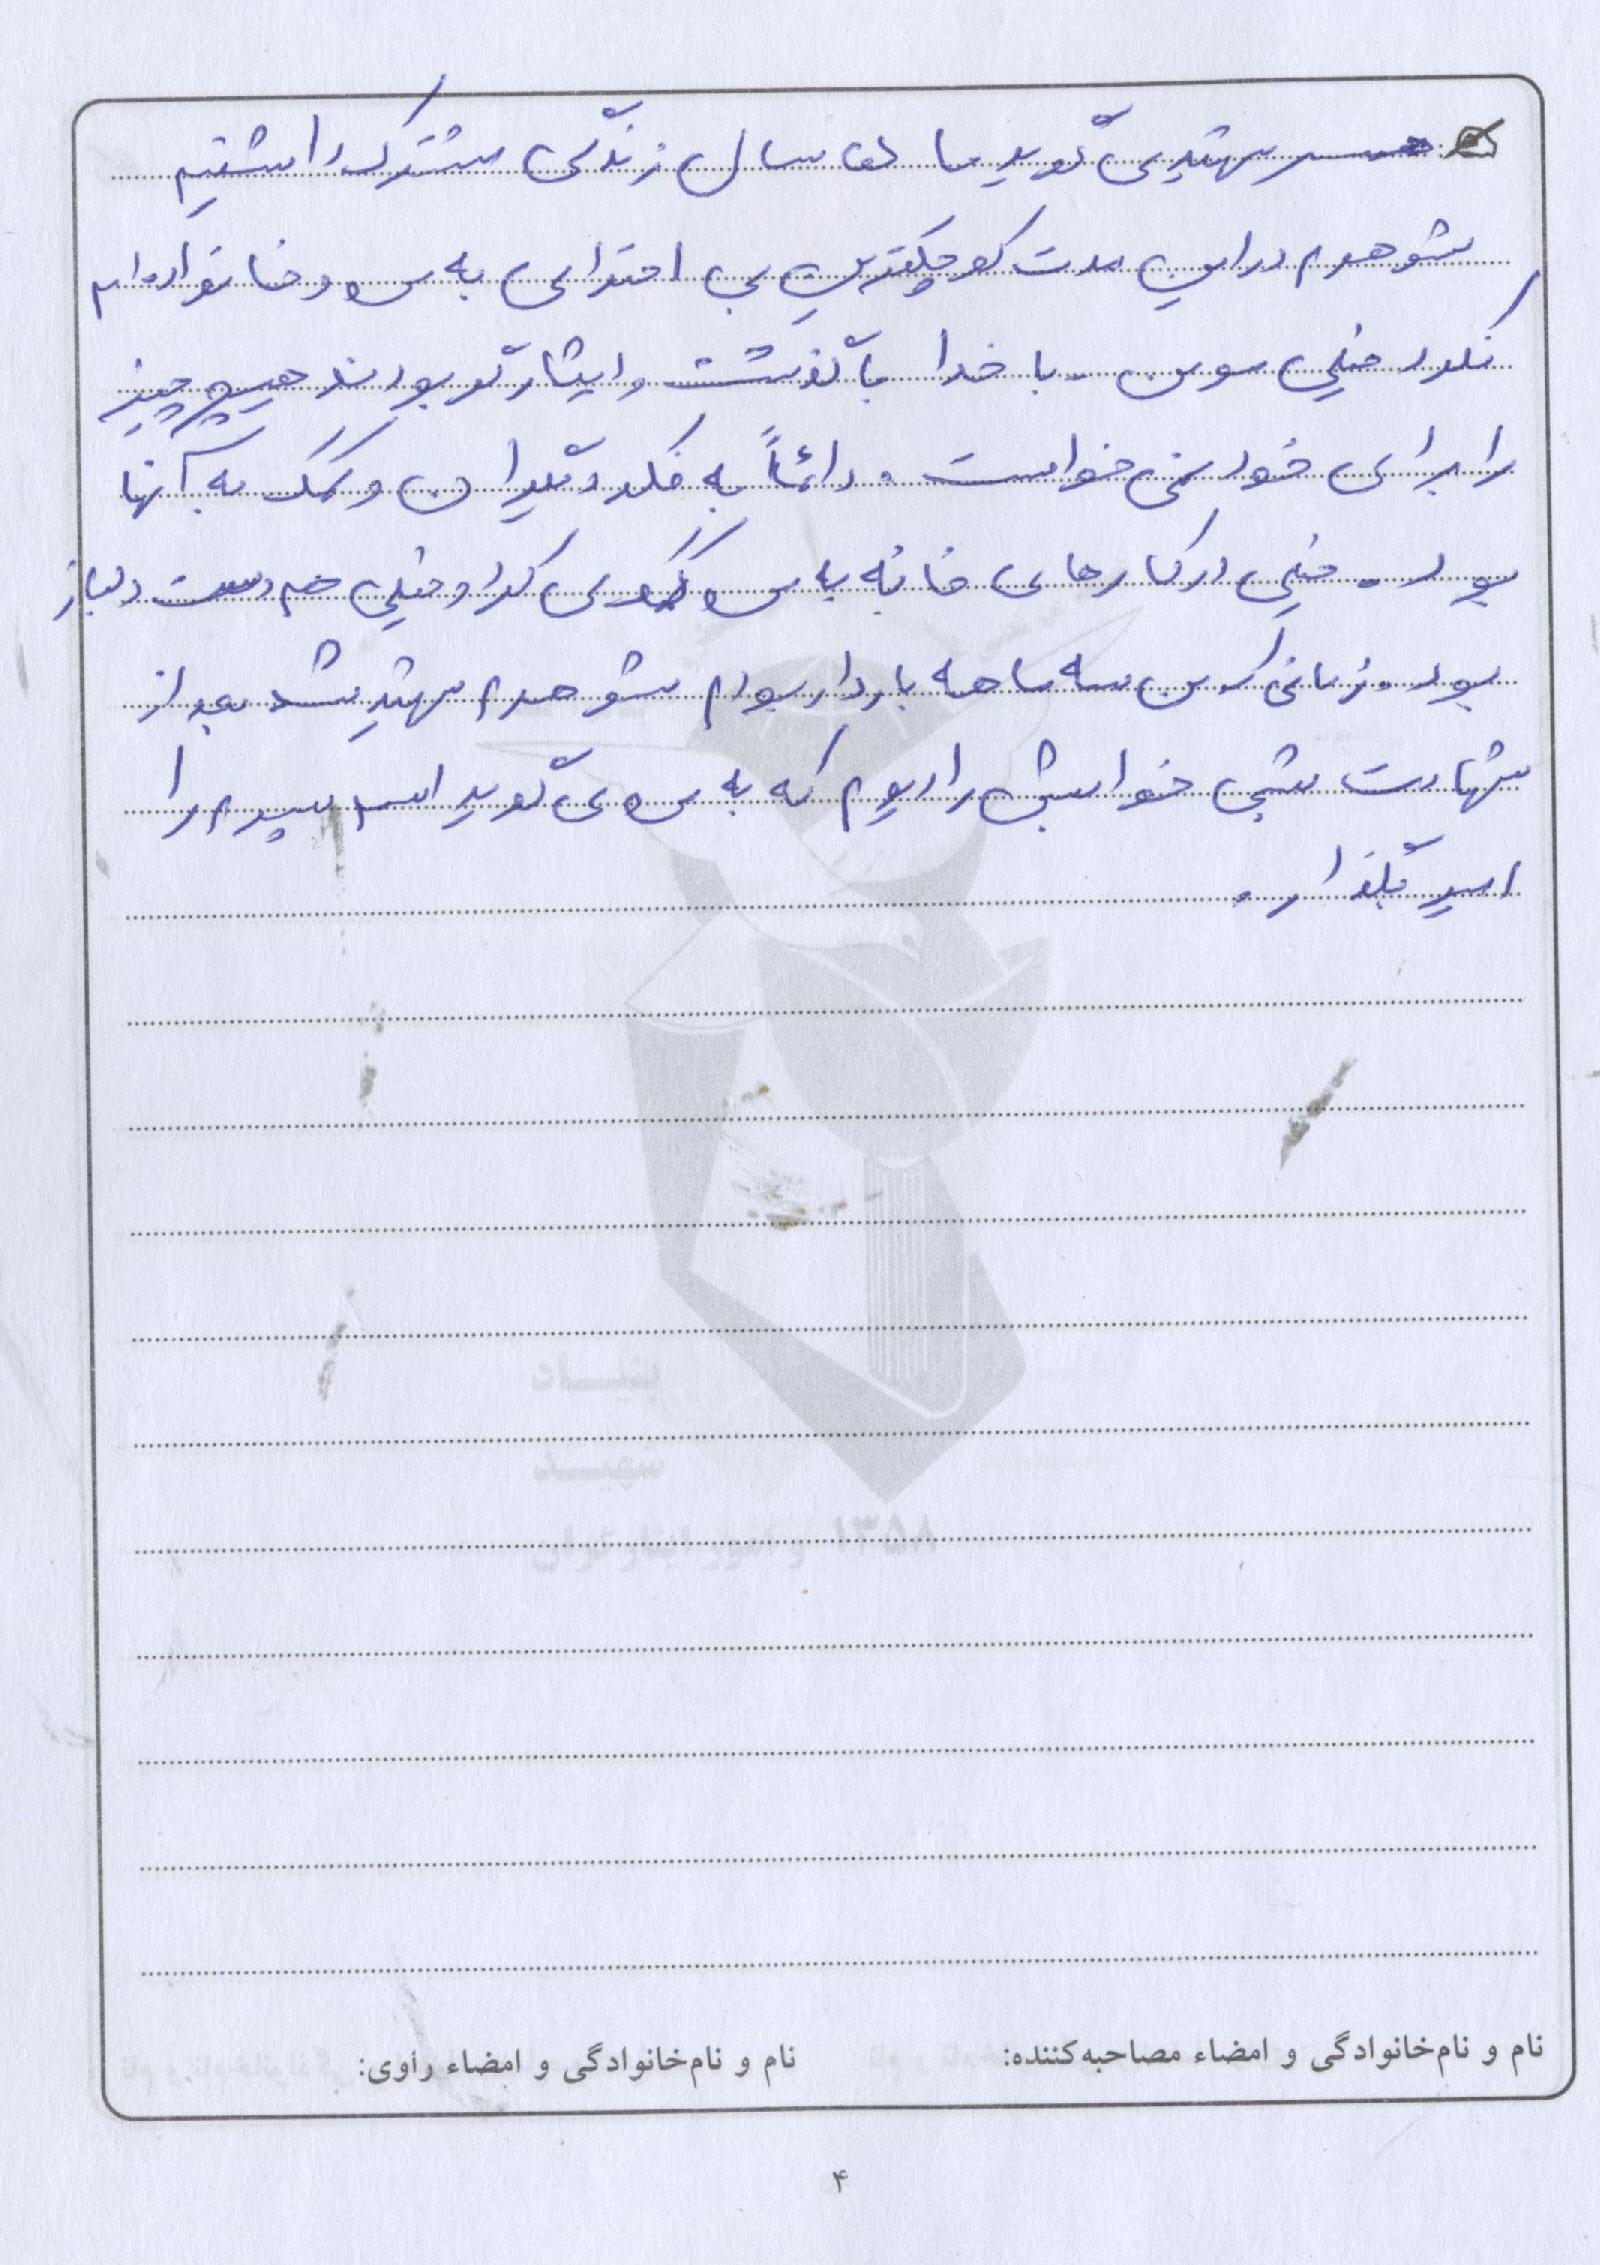 همسر شهید می گوید ما ده سال زندگی مشترک داشتیم
شوهرم در این مدت کوچکترین بی احترامی به من و خانواده ام
نکرد خیلی مومن - با خدا با گذشت و ایثارگر بودند هیچ چیز
را برای خود نمی خواست . دائماً به فکر دیگران و کمک به آنها
بود . خیلی در کارهای خانه به من کمک می کرد و خیلی هم دست و دلباز
بود . زمانی که من سه ماهه باردار بودم شوهرم شهید شد بعد از
شهادت شبی خوابش را دیدم که به من می گوید اسم پسرم را
امیر بگذار .
بنیاد
شهید
و امور ایثارگران ۱۳۵۸
نام و نام‌خانوادگی و امضاء مصاحبه‌کننده: نام و نام‌خانوادگی و امضاء راوی:
۴